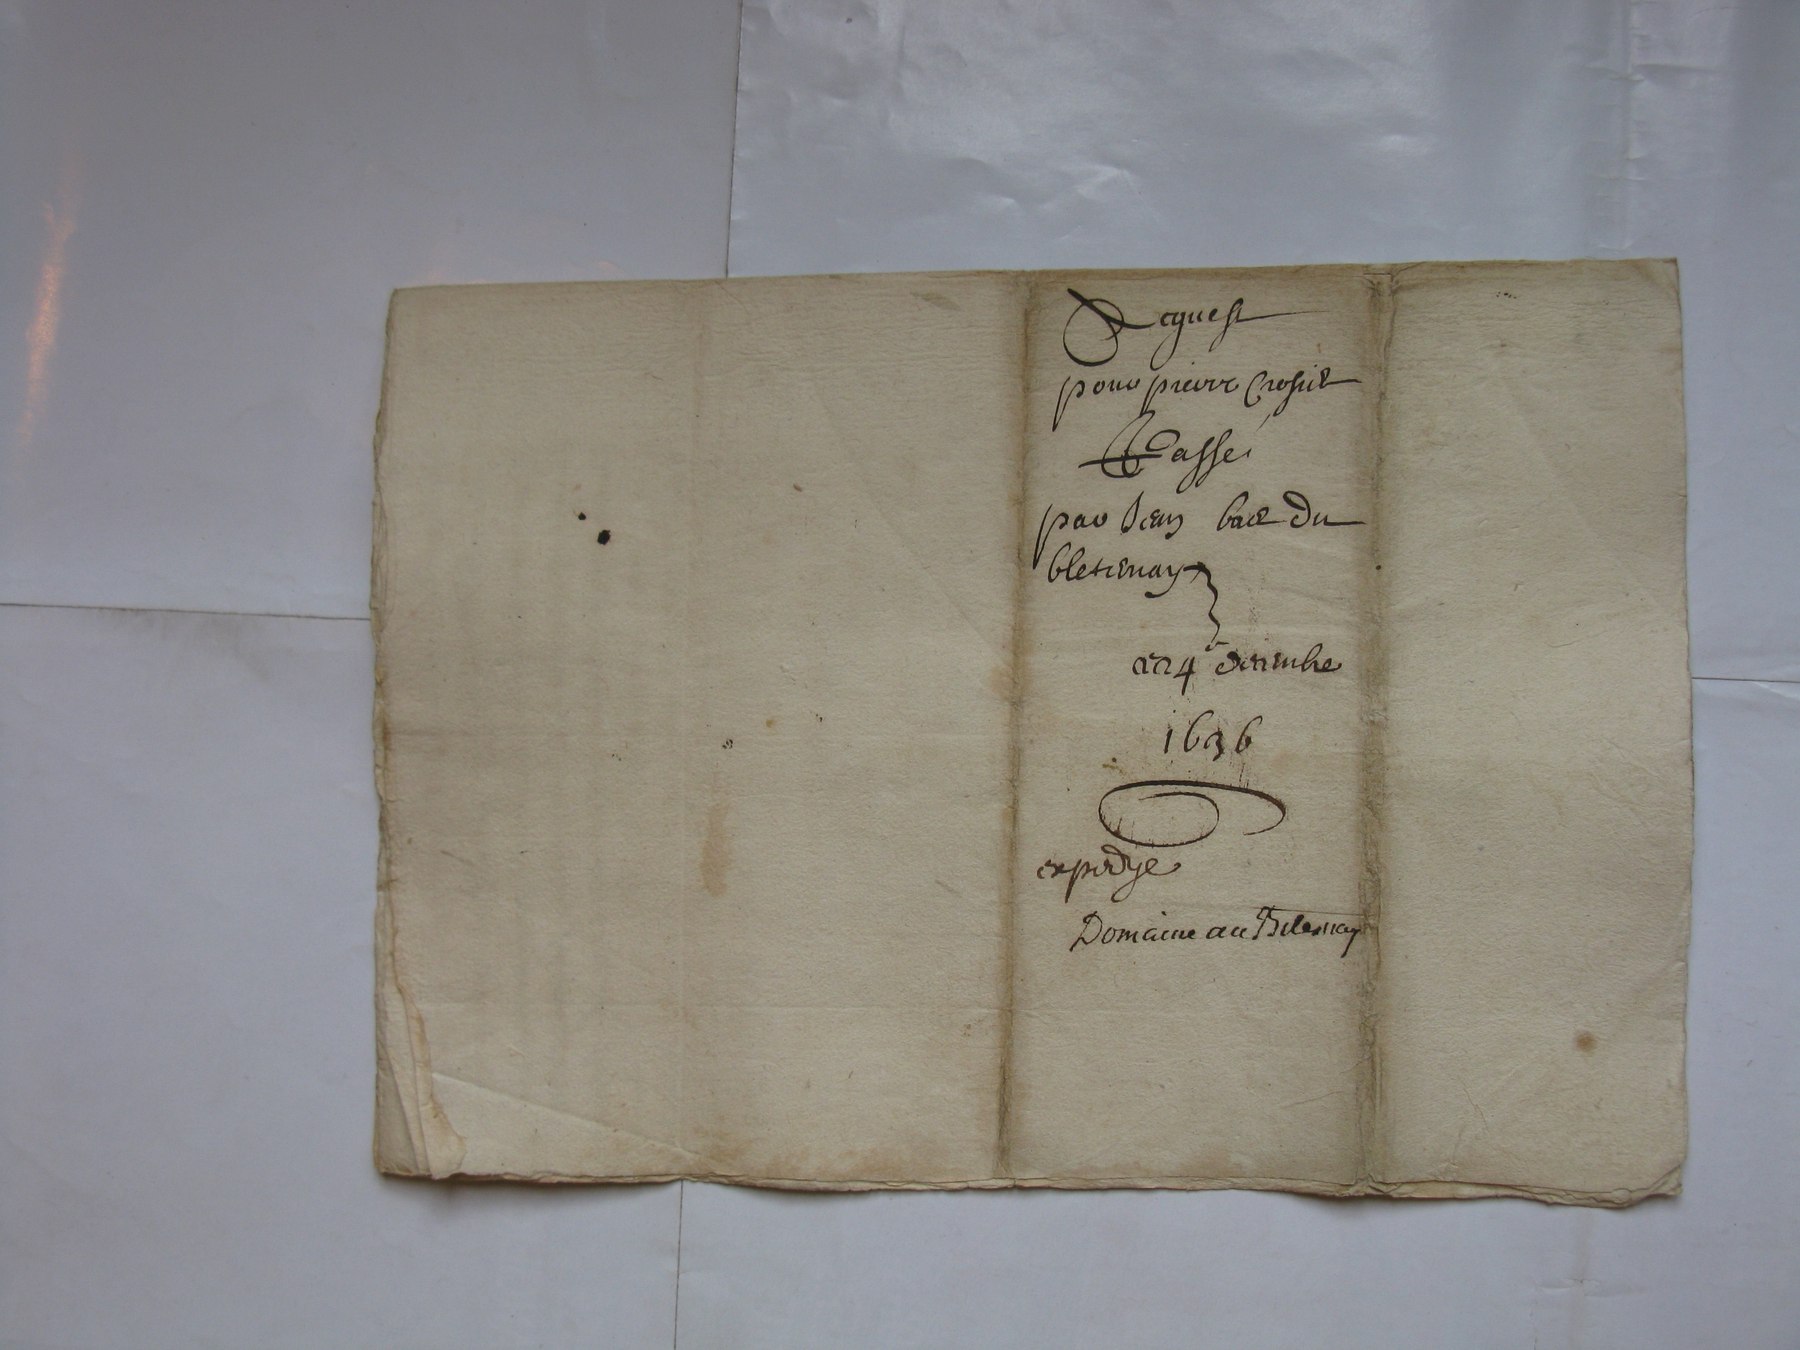 Acquest
pour pierre Crosier
Passé
par Jean bae du
bleternay
en 4e decembre
1636
expedye
Domaine au Bletenay